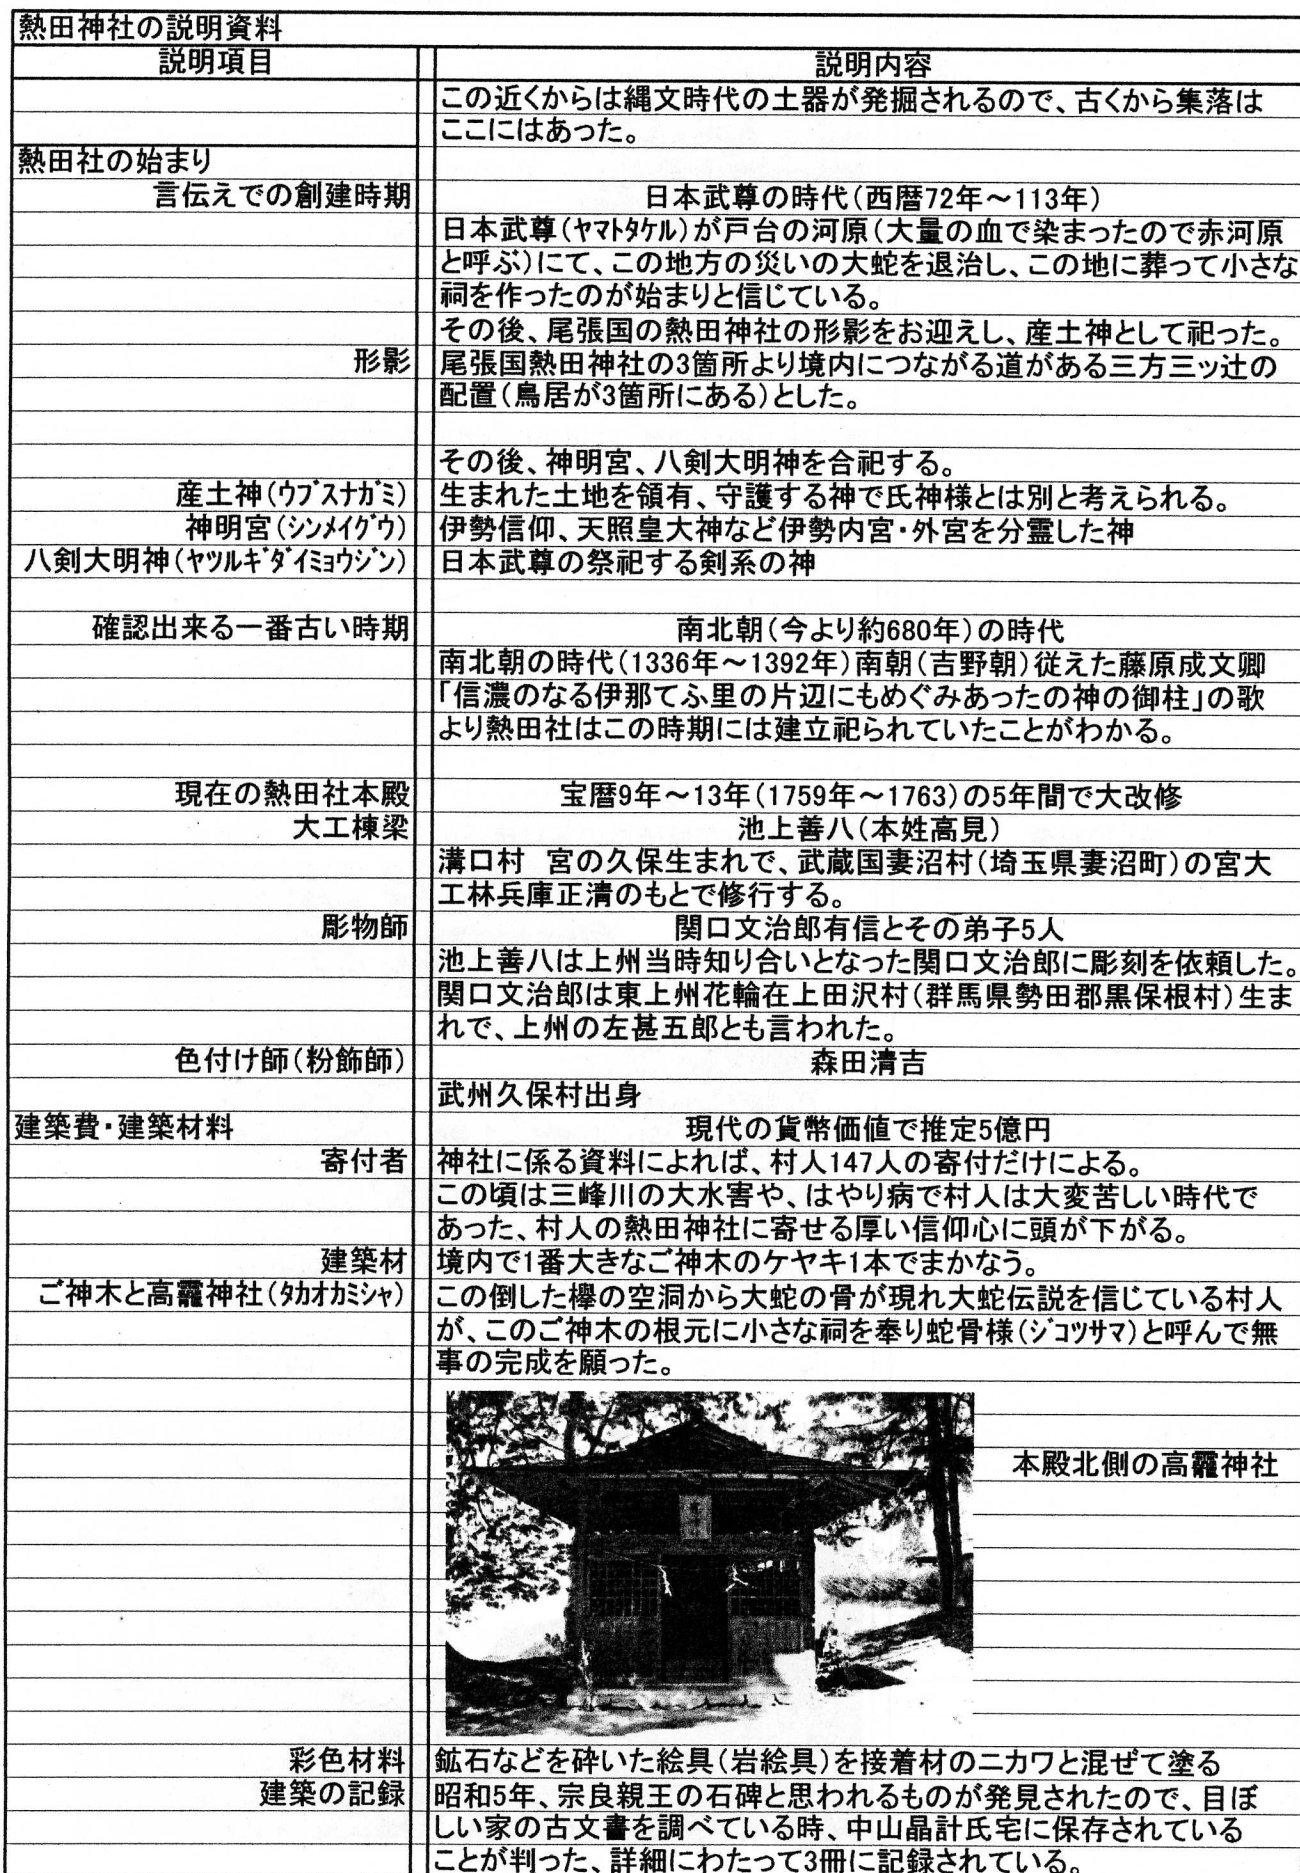 熱田神社の説明資料
説明項目 説明内容
この近くからは縄文時代の土器が発掘されるので、古くから集落は
ここにはあった。
熱田社の始まり
言伝えでの創建時期 日本武尊の時代(西暦72年～113年)
日本武尊(ヤマトタケル)が戸台の河原(大量の血で染まったので赤河原
と呼ぶ)にて、この地方の災いの大蛇を退治し、この地に葬って小さな
祠を作ったのが始まりと信じている。
その後、尾張国の熱田神社の形影をお迎えし、産土神として祀った。
形影 尾張国熱田神社の3箇所より境内につながる道がある三方三ッ辻の
配置(鳥居が3箇所にある)とした。
その後、神明宮、八剣大明神を合祀する。
産土神(ウブスナガミ) 生まれた土地を領有、守護する神で氏神様とは別と考えられる。
神明宮(シンメイグウ) 伊勢信仰、天照皇大神など伊勢内宮・外宮を分霊した神
八剣大明神(ヤツルギダイミョウジン) 日本武尊の祭祀する剣系の神
確認出来る一番古い時期 南北朝(今より約680年)の時代
南北朝の時代(1336年～1392年)南朝(吉野朝)従えた藤原成文卿
「信濃のなる伊那てふ里の片辺にもめぐみあったの神の御柱」の歌
より熱田社はこの時期には建立祀られていたことがわかる。
現在の熱田社本殿 宝暦9年～13年(1759年～1763)の5年間で大改修
大工棟梁 池上善八(本姓高見)
溝口村 宮の久保生まれで、武蔵国妻沼村(埼玉県妻沼町)の宮大
工林兵庫正清のもとで修行する。
彫物師 関口文治郎有信とその弟子5人
池上善八は上州当時知り合いとなった関口文治郎に彫刻を依頼した。
関口文治郎は東上州花輪在上田沢村(群馬県勢田郡黒保根村)生ま
れで、上州の左甚五郎とも言われた。
色付け師(粉飾師) 森田清吉
武州久保村出身
建築費・建築材料 現代の貨幣価値で推定5億円
寄付者 神社に係る資料によれば、村人147人の寄付だけによる。
この頃は三峰川の大水害や、はやり病で村人は大変苦しい時代で
あった、村人の熱田神社に寄せる厚い信仰心に頭が下がる。
建築材 境内で1番大きなご神木のケヤキ1本でまかなう。
ご神木と高龗神社(タカオカミシャ) この倒した欅の空洞から大蛇の骨が現れ大蛇伝説を信じている村人
が、このご神木の根元に小さな祠を奉り蛇骨様(ジコツサマ)と呼んで無
事の完成を願った。
本殿北側の高龗神社
彩色材料 鉱石などを砕いた絵具(岩絵具)を接着材のニカワと混ぜて塗る
建築の記録 昭和5年、宗良親王の石碑と思われるものが発見されたので、目ぼ
しい家の古文書を調べている時、中山晶計氏宅に保存されている
ことが判った、詳細にわたって3冊に記録されている。